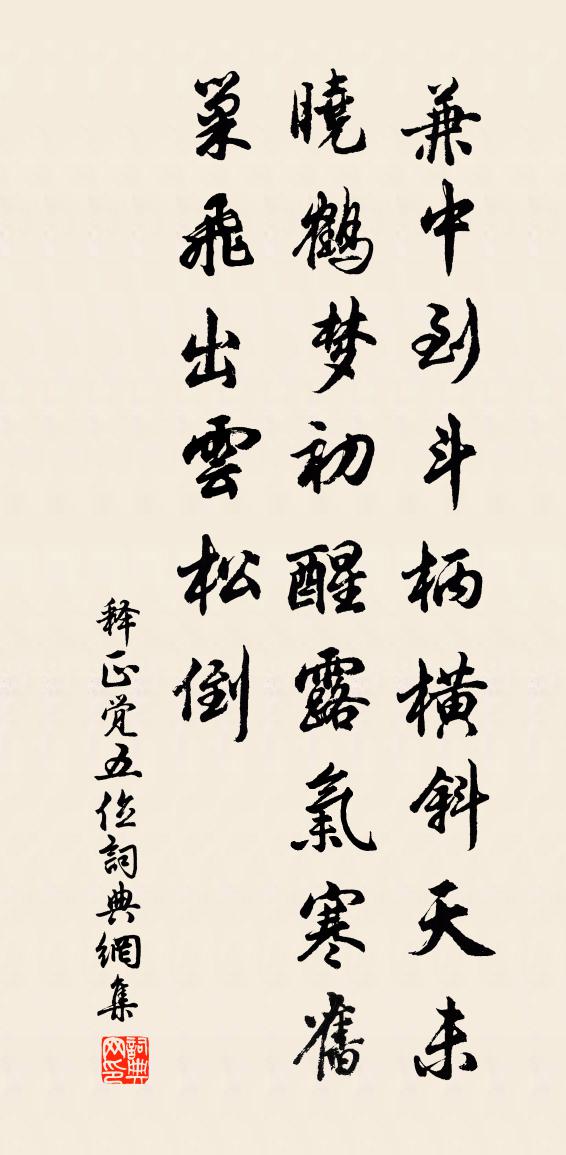 兼中到斗柄橫斜天未
曉鶴梦初醒露氣寒舊
巢飛出雲松倒
释正覚五位詞典網集
詞典网印